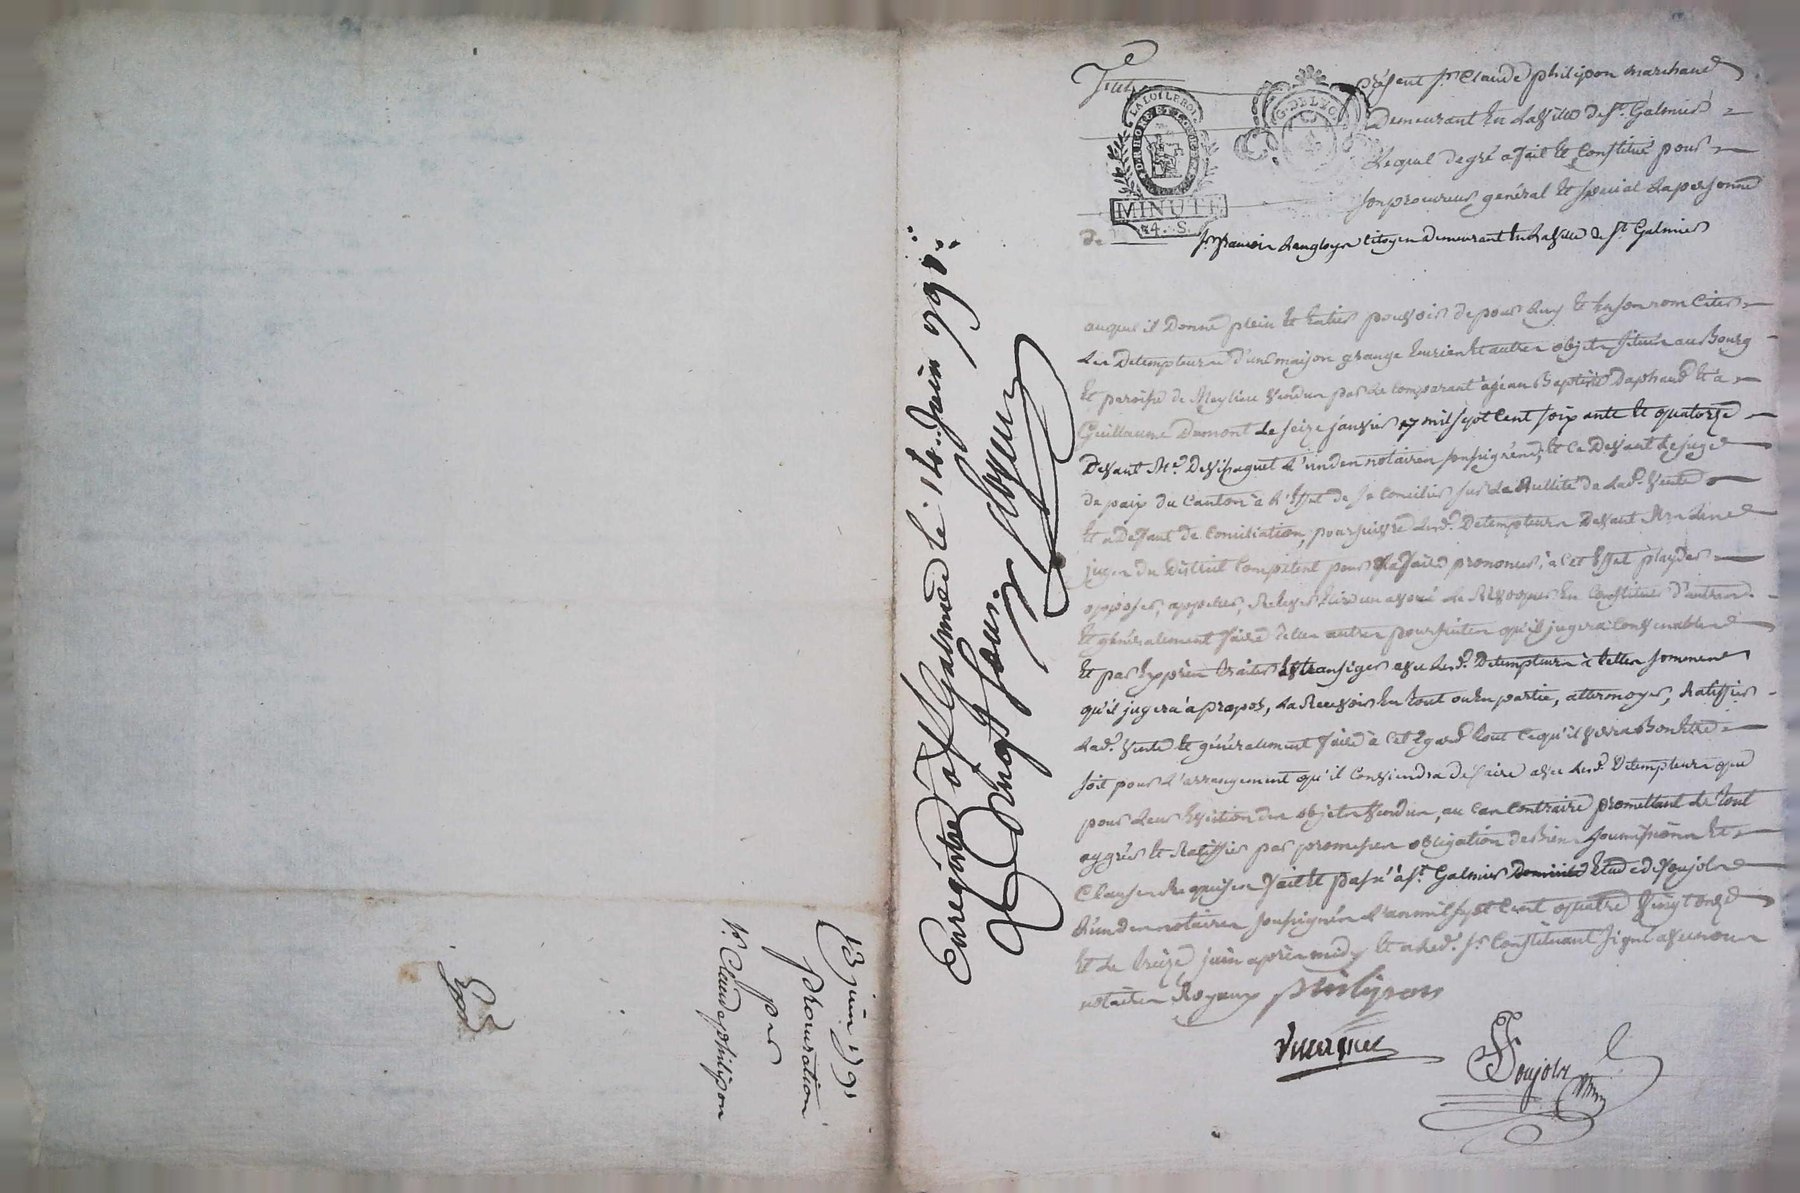 Fut
présent sr. Claude philipon marchand
demeurant en la ville de st. Galmier
Lequel de gré a fait et constitué pour
son procureur général et spécial la personne
LA LOI LE ROI
G. DE LYON
MINUTE
4. S.
de sr. francois Langloys citoyen demeurant en la ville de st. Galmier
auquel il donne plein et entier pouvoir de pour luy et en son nom citer
les detempteurs d'une maison grange écurie et autres objets situés au Bourg
et paroisse de Meylieu vendus par le comparant à jean Baptiste Daphaud et à
Guillaume Dumont le seize janvier mil sept cent soixante et quatorze
devant Me. l'un des notaires soussignés, et ce devant le juge
de paix du canton à l'effet de se concilier sur la Nullité de lad. vente
et à deffaut de conciliation, poursuivre lesd. detempteurs devant MM. les
juges du District compétent pour la faire prononcer, à cet effet playder
opposer, appeller, relever élire un avoué le révoquer en constituer d'autres
et généralement faire telles autres poursuites qu'il jugera convenables
et par exprès traiter et transiger avec lesd. detempteurs à telles sommes
qu'il jugera à propos, la recevoir en tout ou en partie, attermoyer, Ratiffier
lad. vente et généralement faire à cet égard tout ce qu'il verra bon être
soit pour l'arrangement qu'il conviendra de faire avec lesd. detempteurs que
pour leur éviction des objets vendus, au cas contraire promettant le tout
agréer et Ratiffier par promesses obligation de biens soumissions et
clauses requises fait et passé à st. Galmier étude de Soujols
l'un des notaires soussignés l'an mil sept cent quatre vingt onze
et le treize juin après midy et a led. sr. constituant signé avec nous
notaires Royaux philipon
Soujols
Enregistré à st Galmier le 14 juin 1791
Reçu vingt sous.
13 juin 1791
procuration
par
sr. Claude philipon